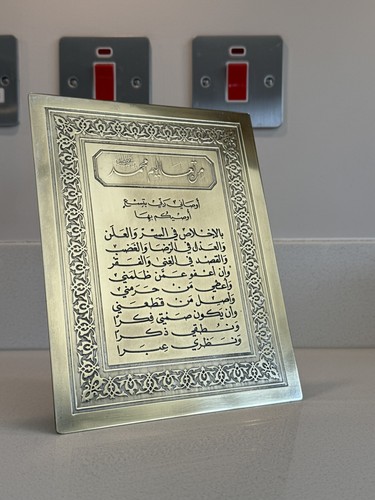 من تعاليم محمد
أوصاني ربي بتسع
أوصيكم بها
بالإخلاص في السر والعلن
والعدل في الرضا والغضب
والقصد في الغنى والفقر
وأن أعفو عمن ظلمني
وأعطي من حرمني
وأصل من قطعني
وأن يكون صمتي فكرا
ونطقي ذكرا
ونظري عبرا